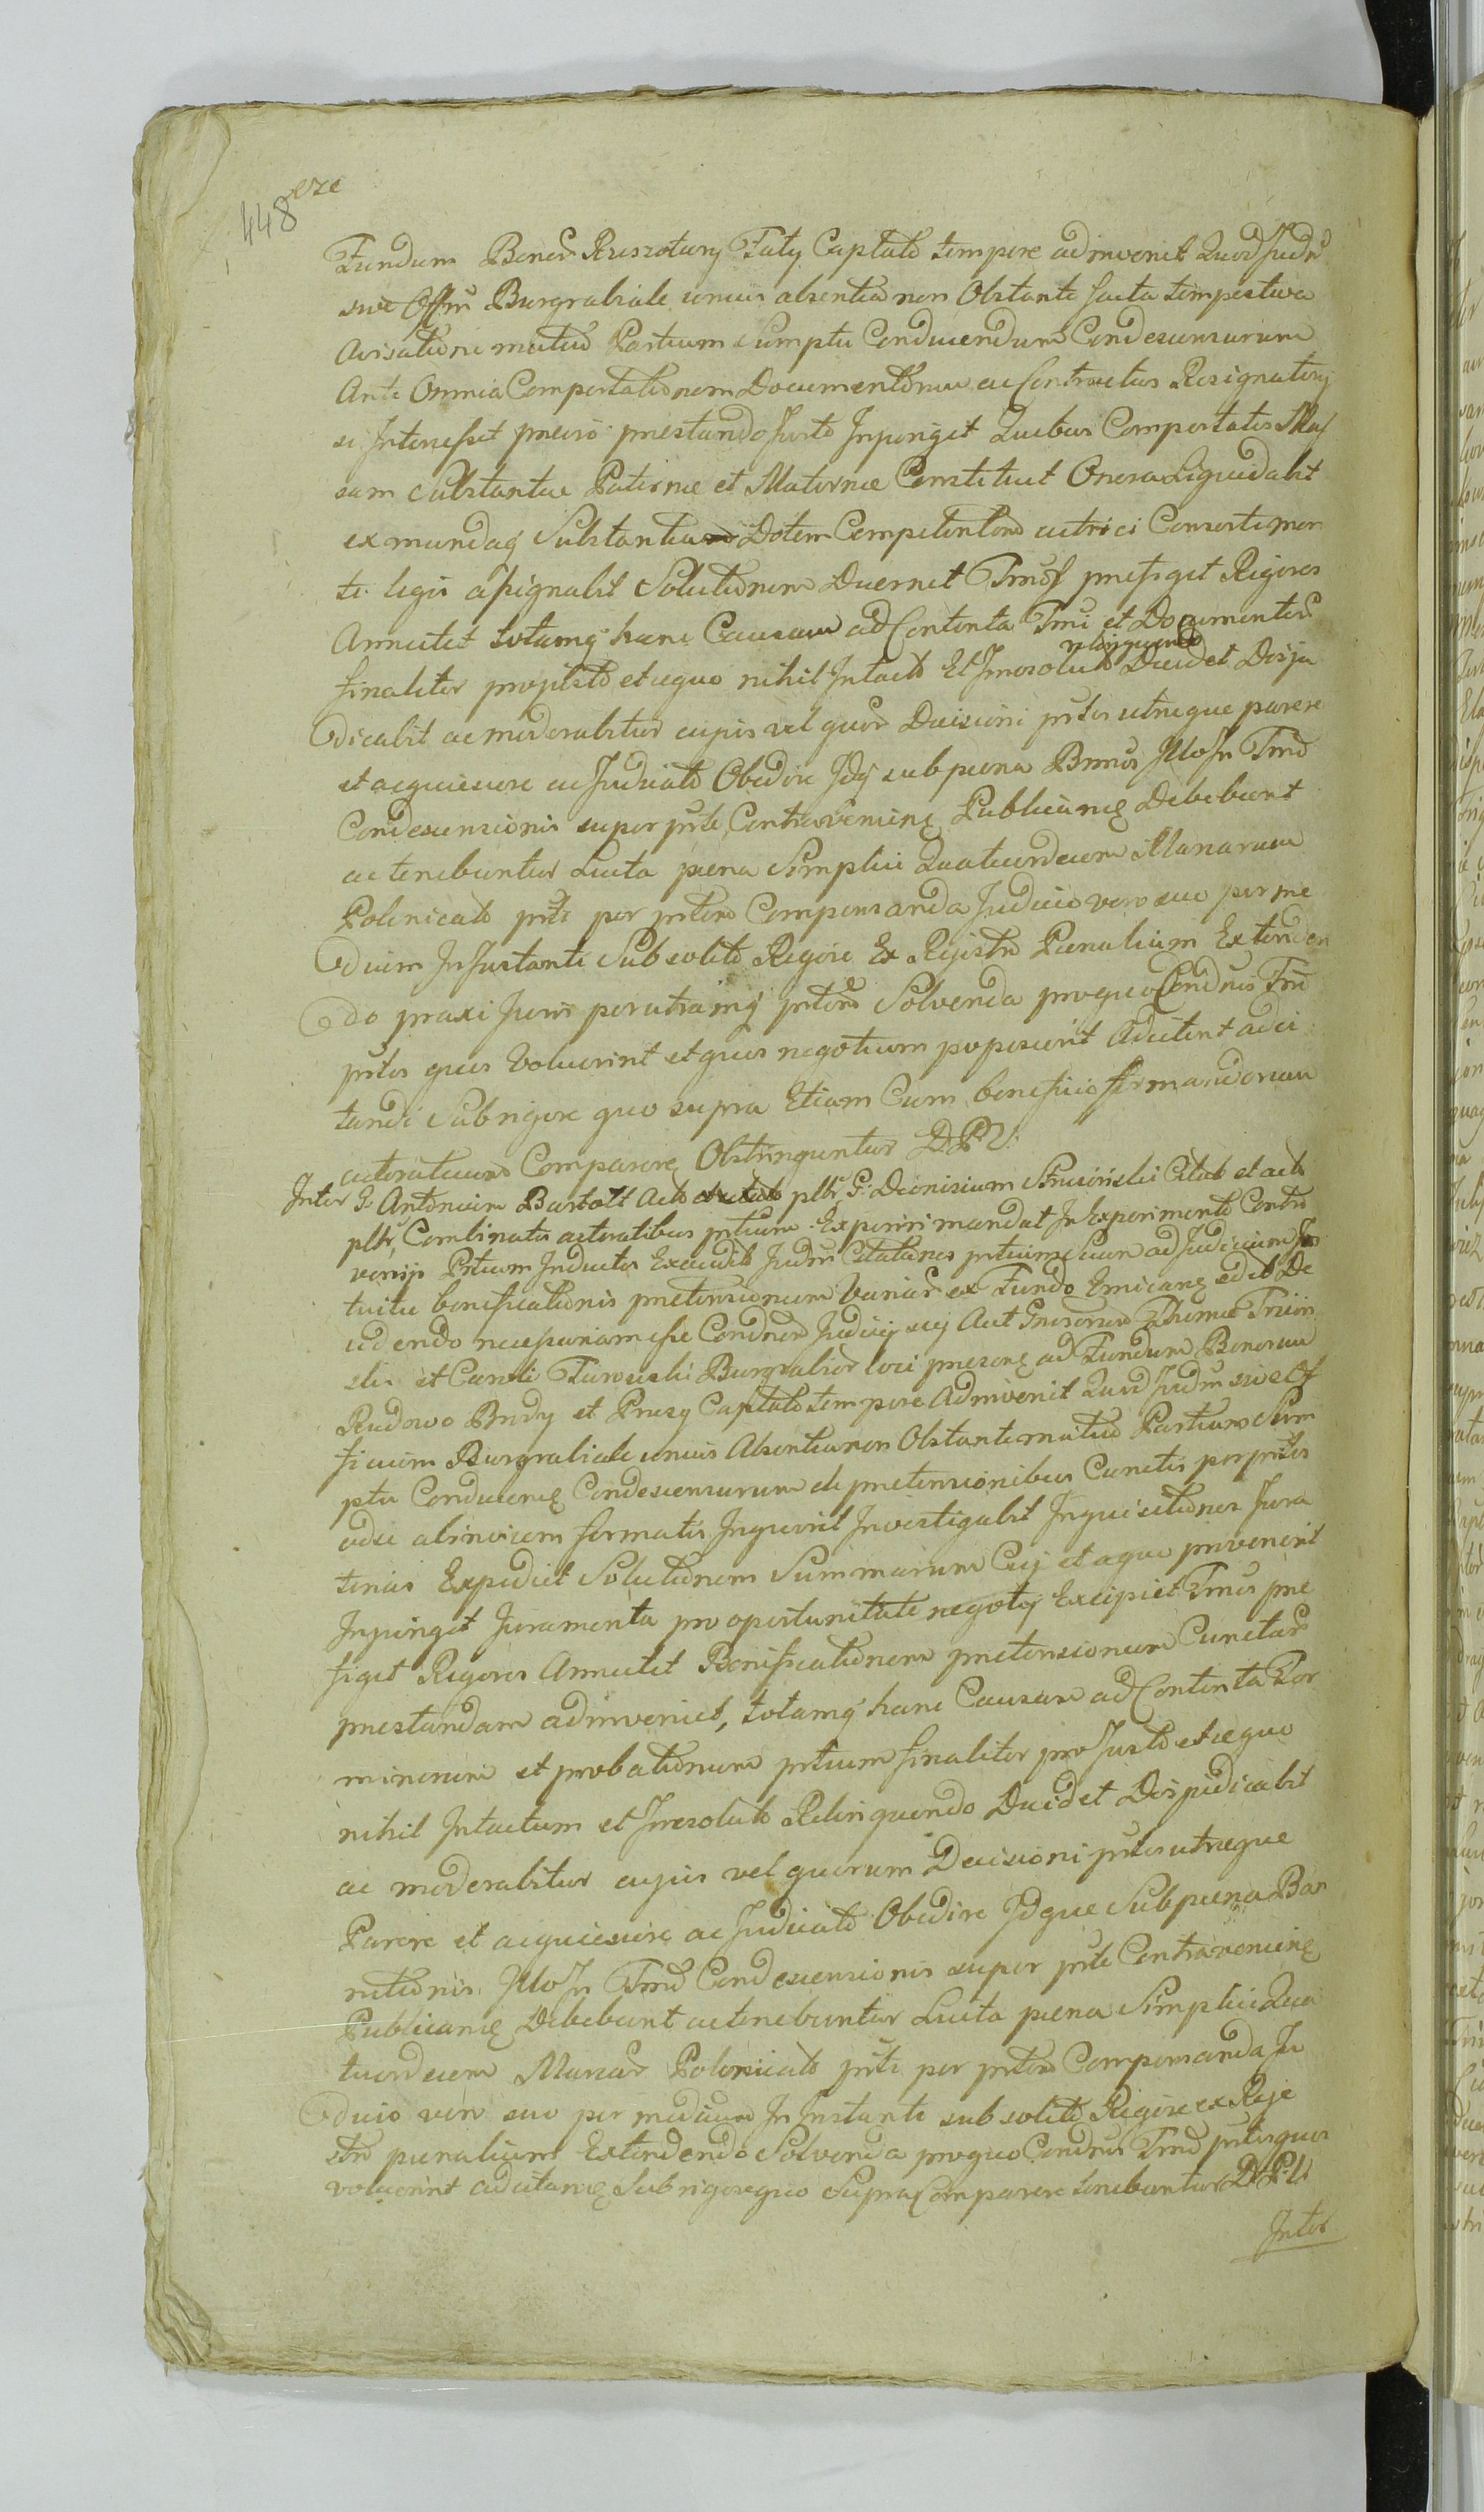 448
Fundum Bonor Ruszotary Faty Captato tempore adinvenit Quod Judm
sive Offm Burgrabiale unius absentia non Obstante facta tempestiva
Avisatione mutuo Partium Sumptu Conducendum Condescensurum
Ante Omnia Comportationem Documentorum ac Contractus Resignatory
si Interesset praevio praestando Jurto Injunget Quibus Comportatis Mas
sam Substantiae Paternae et Maternae Constituet Onera Liquidabit
ex mundaq Substantia Dotem Competentem actrici Consorti men
te legis assignabit Solutionem Decernet Tmos praefiget Rigores
Annectet totamq hanc Causam ad Contenta Tmi et Documentor
relinquendo
finaliter pro justo et aequo nihil Intacto Et Irresoluto Decidet Diju
dicabit ac moderabitur cujus vel quor Decisioni ptes utraeque parere
et acquiescere ac Judicato Obedire Idq sub paena Bnnis Illo In Tmo
Condescensionis super pte Contravenien Publican Debebunt
ac tenebuntur Lucta paena Simplici Quatuordecim Marcarum
Polonicalo pti per ptem Compensanda Judicio vero suo per me
dium In Instanti Sub solito Rigore Ex Regestro Paenalium Extenden
do praxi Juris per utramq ptem Solvenda pro quo Condnis Tmo
ptes quos Voluerint et quos negotium poposcerit Adcitent adci
tandi Sub rigore quo supra Etiam Cum beneficio formandorum
actoratuum Comparere Obstringuntur D.P.V.
Inter G. Antonium Bartolt Acto pltr G. Dionisium Citato et acto
pltr Combinatis actoratibus ptium Experiri mandat In Experimento Contro
versijs Ptium Inductis Exaudit Judm Citationes ptium Suum ad Judicium In
tuitu bonificationis praetensionum Variar ex Fundo Emican edit De
cidendo necessariam esse Condnem Judicij sui Aut Gnosorum Thomae
ski et Caroli Turowski Burgrabior loci praesen ad Fundum Bonorum
Rudowo Brody et Prusy Captato tempore Adinvenit Quod Judm sive Of
ficium Burgrabiale unius Absentia non Obstante mutuo Partium Sum
ptu Conducen Condescensurum de praetensionibus Cunctis per ptes
adse abinvicem formatis Inquiret Investigabit Inquisitiones Jura
torias Expediet Solutionem Summarum Cuj et a quo provenerit
Injunget Juramenta pro oportunitate negotij Excipiet Tmos prae
figet Rigores Annectet Bonificationem praetensionum Cunctar
praestandam adinveniet, totamq hanc Causam ad Contenta Ter
minorum et probationum ptium finaliter pro Justo et aequo
nihil Intactum et Irresoluto Relinquendo Decidet Dijudicabit
ac moderabitur cujus vel quorum Decisioni ptes utraeque
Parere et acquiescere ac Judicato Obedire Idque Sub paena Ban
nitionis Illo In Tmo Condescensionis super pte Contravenien
Publican Debebunt ac tenebuntur Lucta paena Simplici Qua
tuordecim Marcar Polonicalo pti per ptem Compensanda Ju
dicio vero suo per medium In Instanti sub solito Rigore ex Rege
stro paenalium Extendendo Solvenda pro quo Condnis Tmo ptes quos
voluerint adcitan Sub rigore quo Supra Comparere tenebuntur D.P.V.
Inter